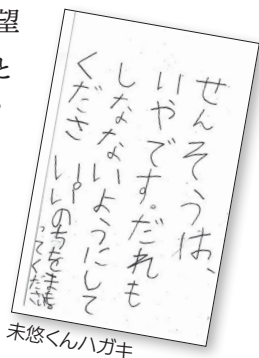 望
と
。
せんそうは、
いやです。だれも
しなないようにして
ください。いのちをまも
ってください
未悠くんハガキ